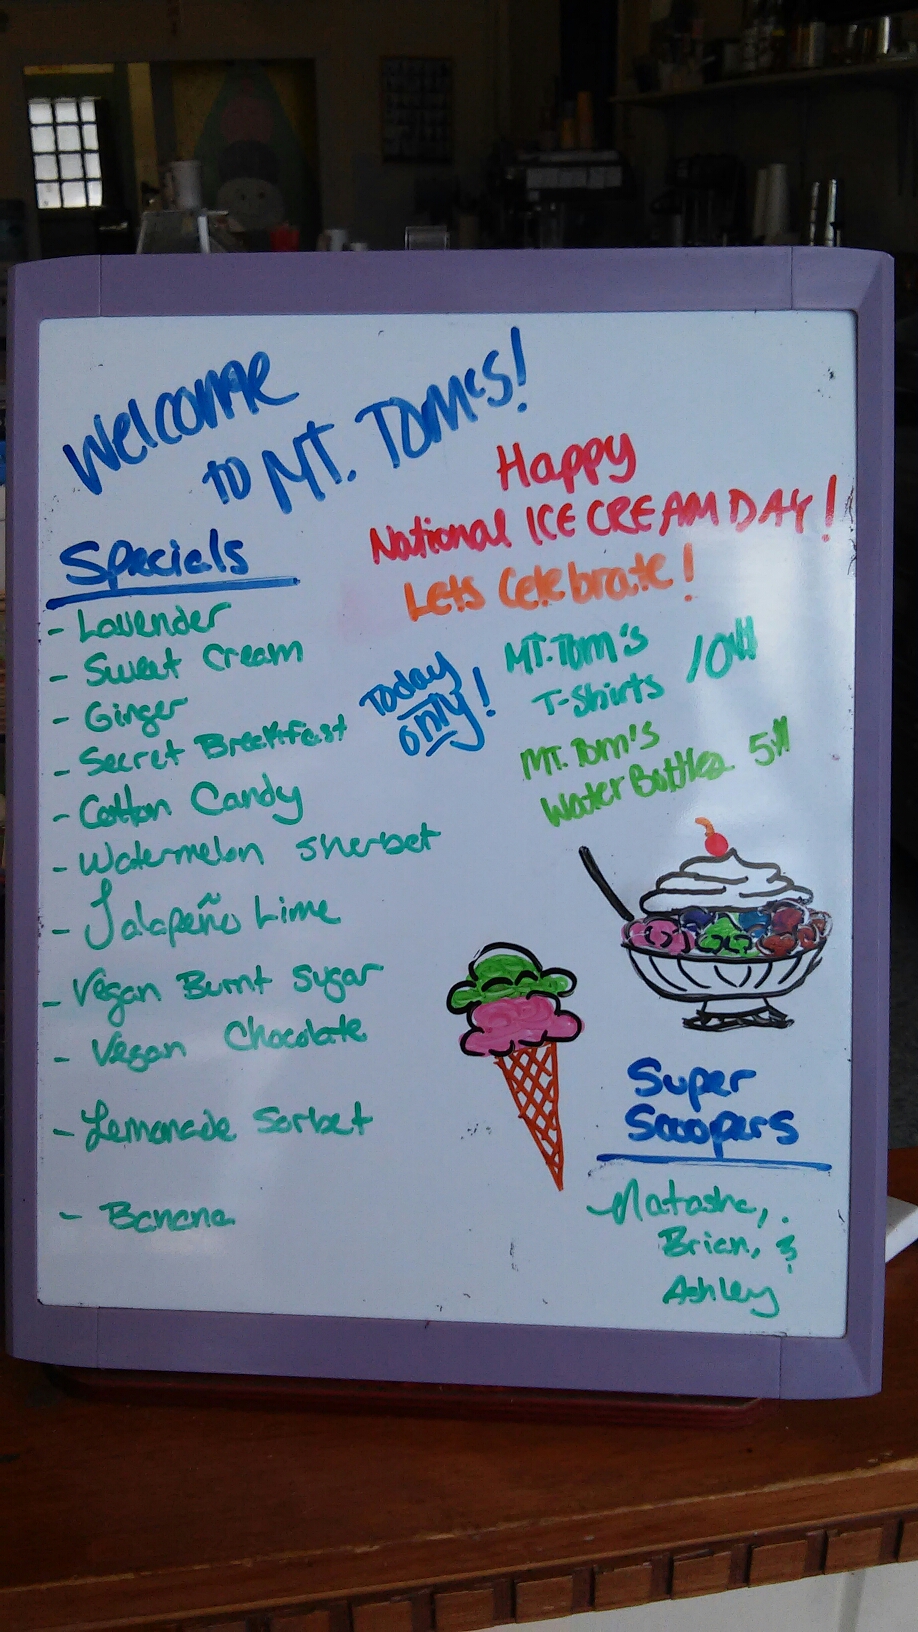 Welcome
to MT. TOM'S!
Happy
National ICE CREAM DAY!
Lets Celebrate!
Specials
- Lavender
- Sweet Cream
- Ginger
- Secret Breakfast
- Cotton Candy
- Watermelon Sherbet
- Jalapeño Lime
- Vegan Burnt Sugar
- Vegan Chocolate
- Lemonade Sorbet
- Banana
Today
only!
MT. Tom's
T-Shirts 10
MT. Tom's
Water Bottles 5
Super
Scoopers
Natasha,
Brian, &
Ashley